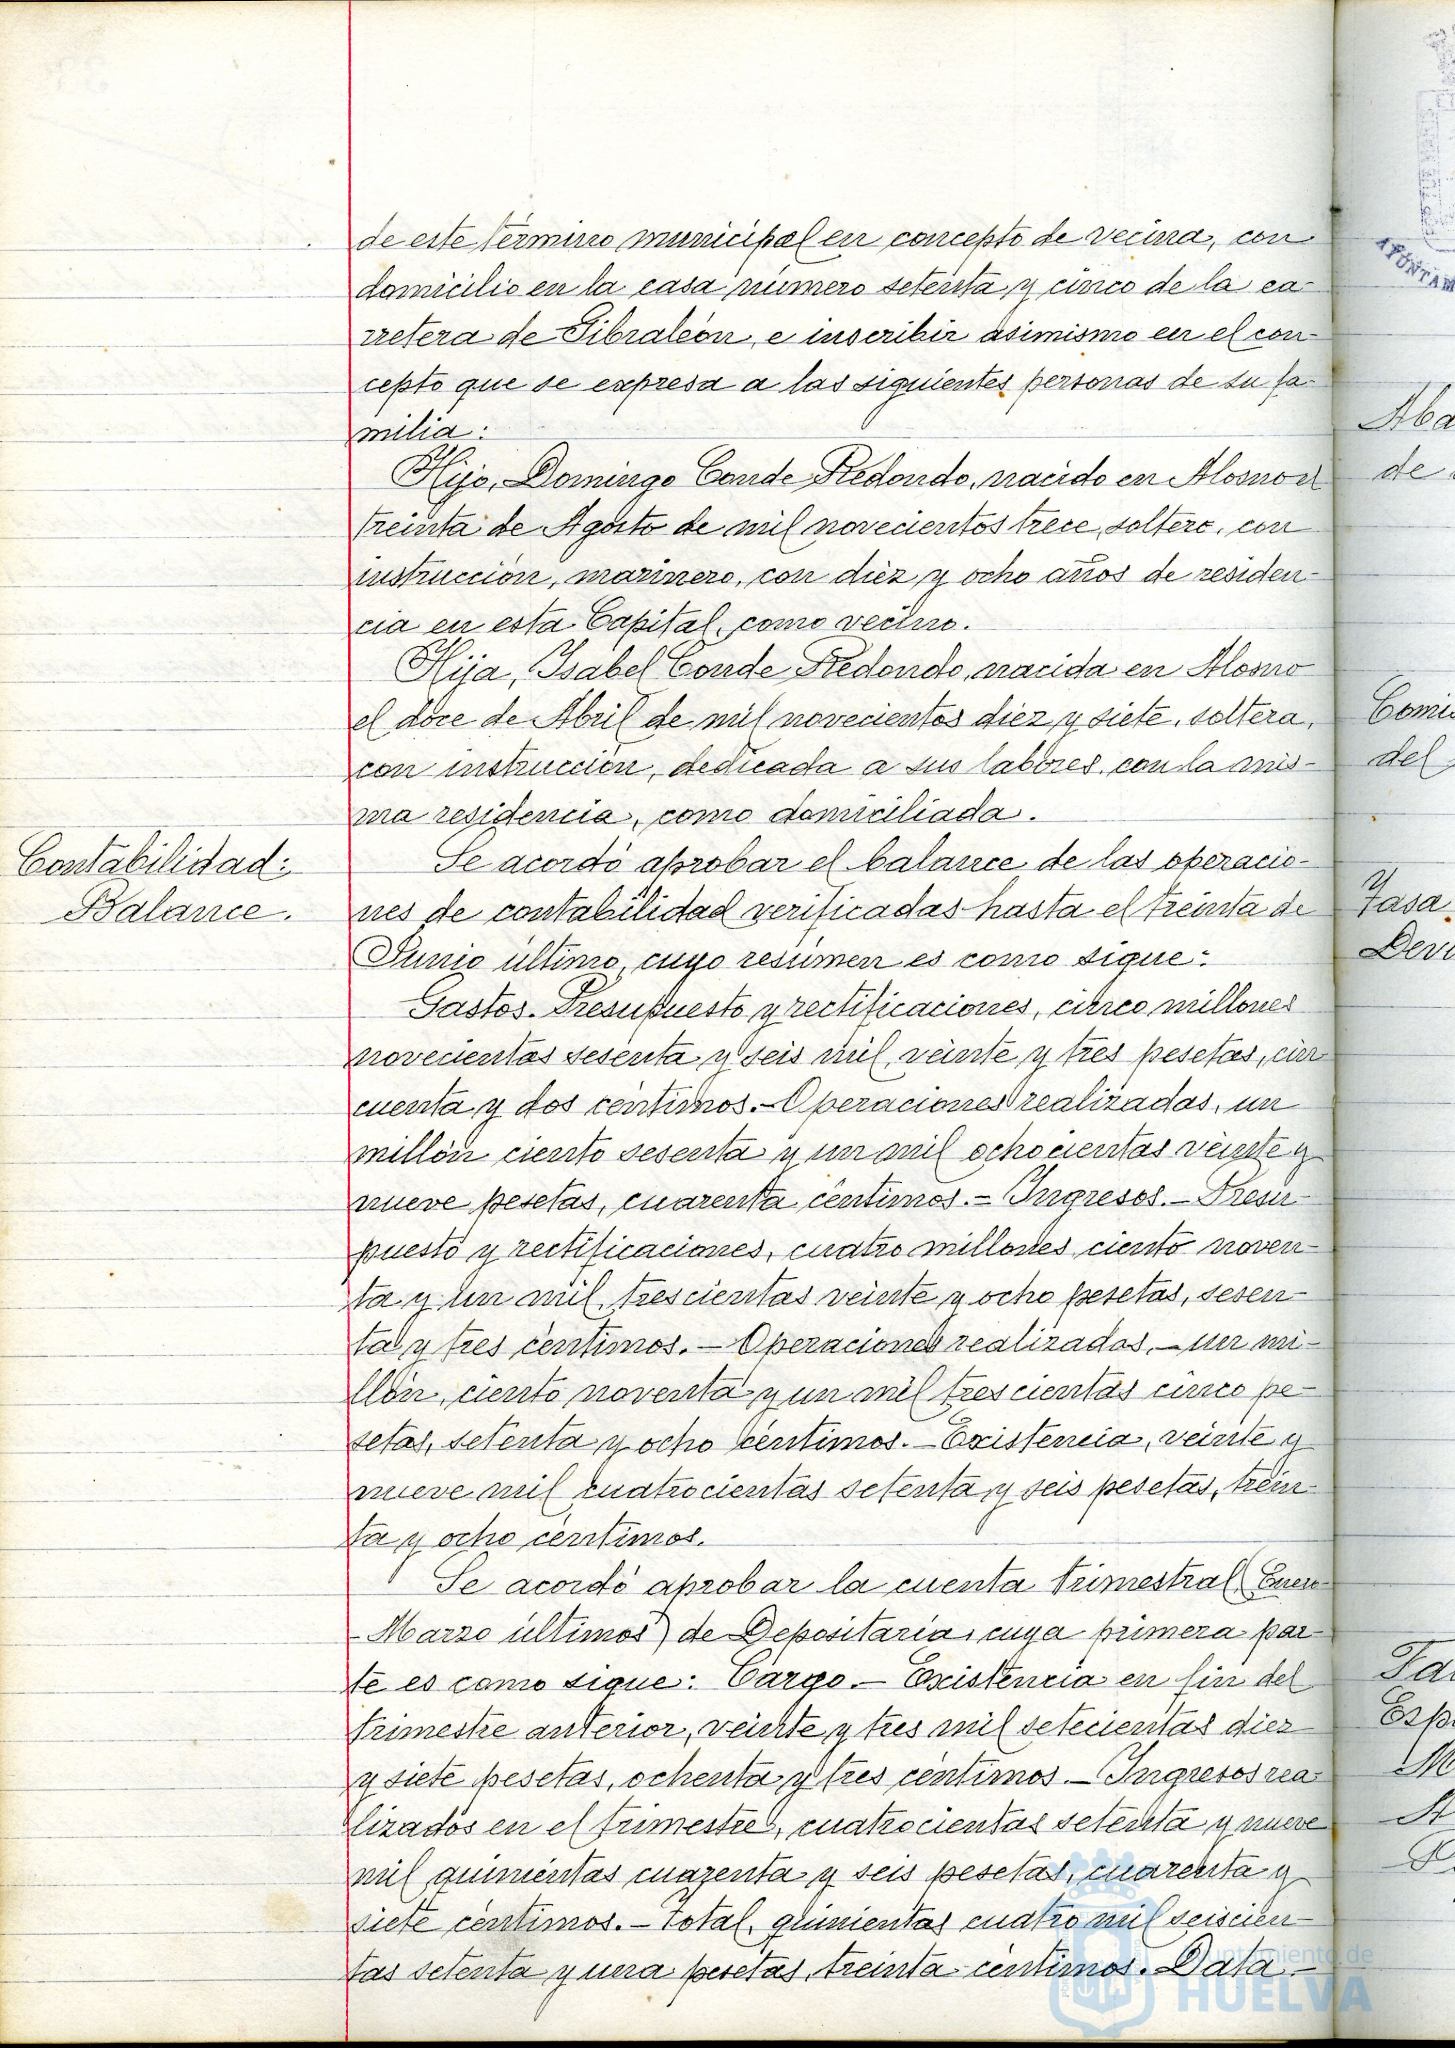 de este término municipal en concepto de vecina, con
domicilio en la casa número setenta y cinco de la ca-
rretera de Gibraleón, e inscribir asimismo en el con-
cepto que se expresa a las siguientes personas de su fa-
milia:
Hijo, Domingo Conde Redondo, nacido en Alosno el
treinta de Agosto de mil novecientos trece, soltero, con
instrucción, marinero, con diez y ocho años de residen-
cia en esta Capital, como vecino.
Hija, Isabel Conde Redondo, nacida en Alosno
el doce de Abril de mil novecientos diez y siete, soltera,
con instrucción, dedicada a sus labores, con la mis-
ma residencia, como domiciliada.
Contabilidad:
Balance.
Se acordó aprobar el balance de las operacio-
nes de contabilidad verificadas hasta el treinta de
Junio último, cuyo resúmen es como sigue:
Gastos.- Presupuesto y rectificaciones, cinco millones
novecientas sesenta y seis mil, veinte y tres pesetas, cin
cuenta y dos céntimos.- Operaciones realizadas, un
millón ciento sesenta y un mil ochocientas veinte y
nueve pesetas, cuarenta céntimos.- Ingresos.- Presu-
puesto y rectificaciones, cuatro millones ciento noven-
ta y un mil, trescientas veinte y ocho pesetas, sesen-
ta y tres céntimos.- Operaciones realizadas,- un mi-
llón, ciento noventa y un mil trescientas cinco pe-
setas, setenta y ocho céntimos.- Existencia, veinte y
nueve mil cuatrocientas setenta y seis pesetas, trein-
ta y ocho céntimos.
Se acordó aprobar la cuenta trimestral (Enero-
-Marzo últimos) de Depositaría, cuya primera par-
te es como sigue: Cargo.- Existencia en fin del
trimestre anterior, veinte y tres mil setecientas diez
y siete pesetas, ochenta y tres céntimos.- Ingresos rea-
lizados en el trimestre, cuatrocientas setenta y nueve
mil quinientas cuarenta y seis pesetas, cuarenta y
siete céntimos.- Total, quinientas cuatro mil seiscien-
tas setenta y una pesetas, treinta céntimos. Data.-
Aba
de
Comi
del
Tasa
Devi
Esp
Ayuntamiento de
HUELVA